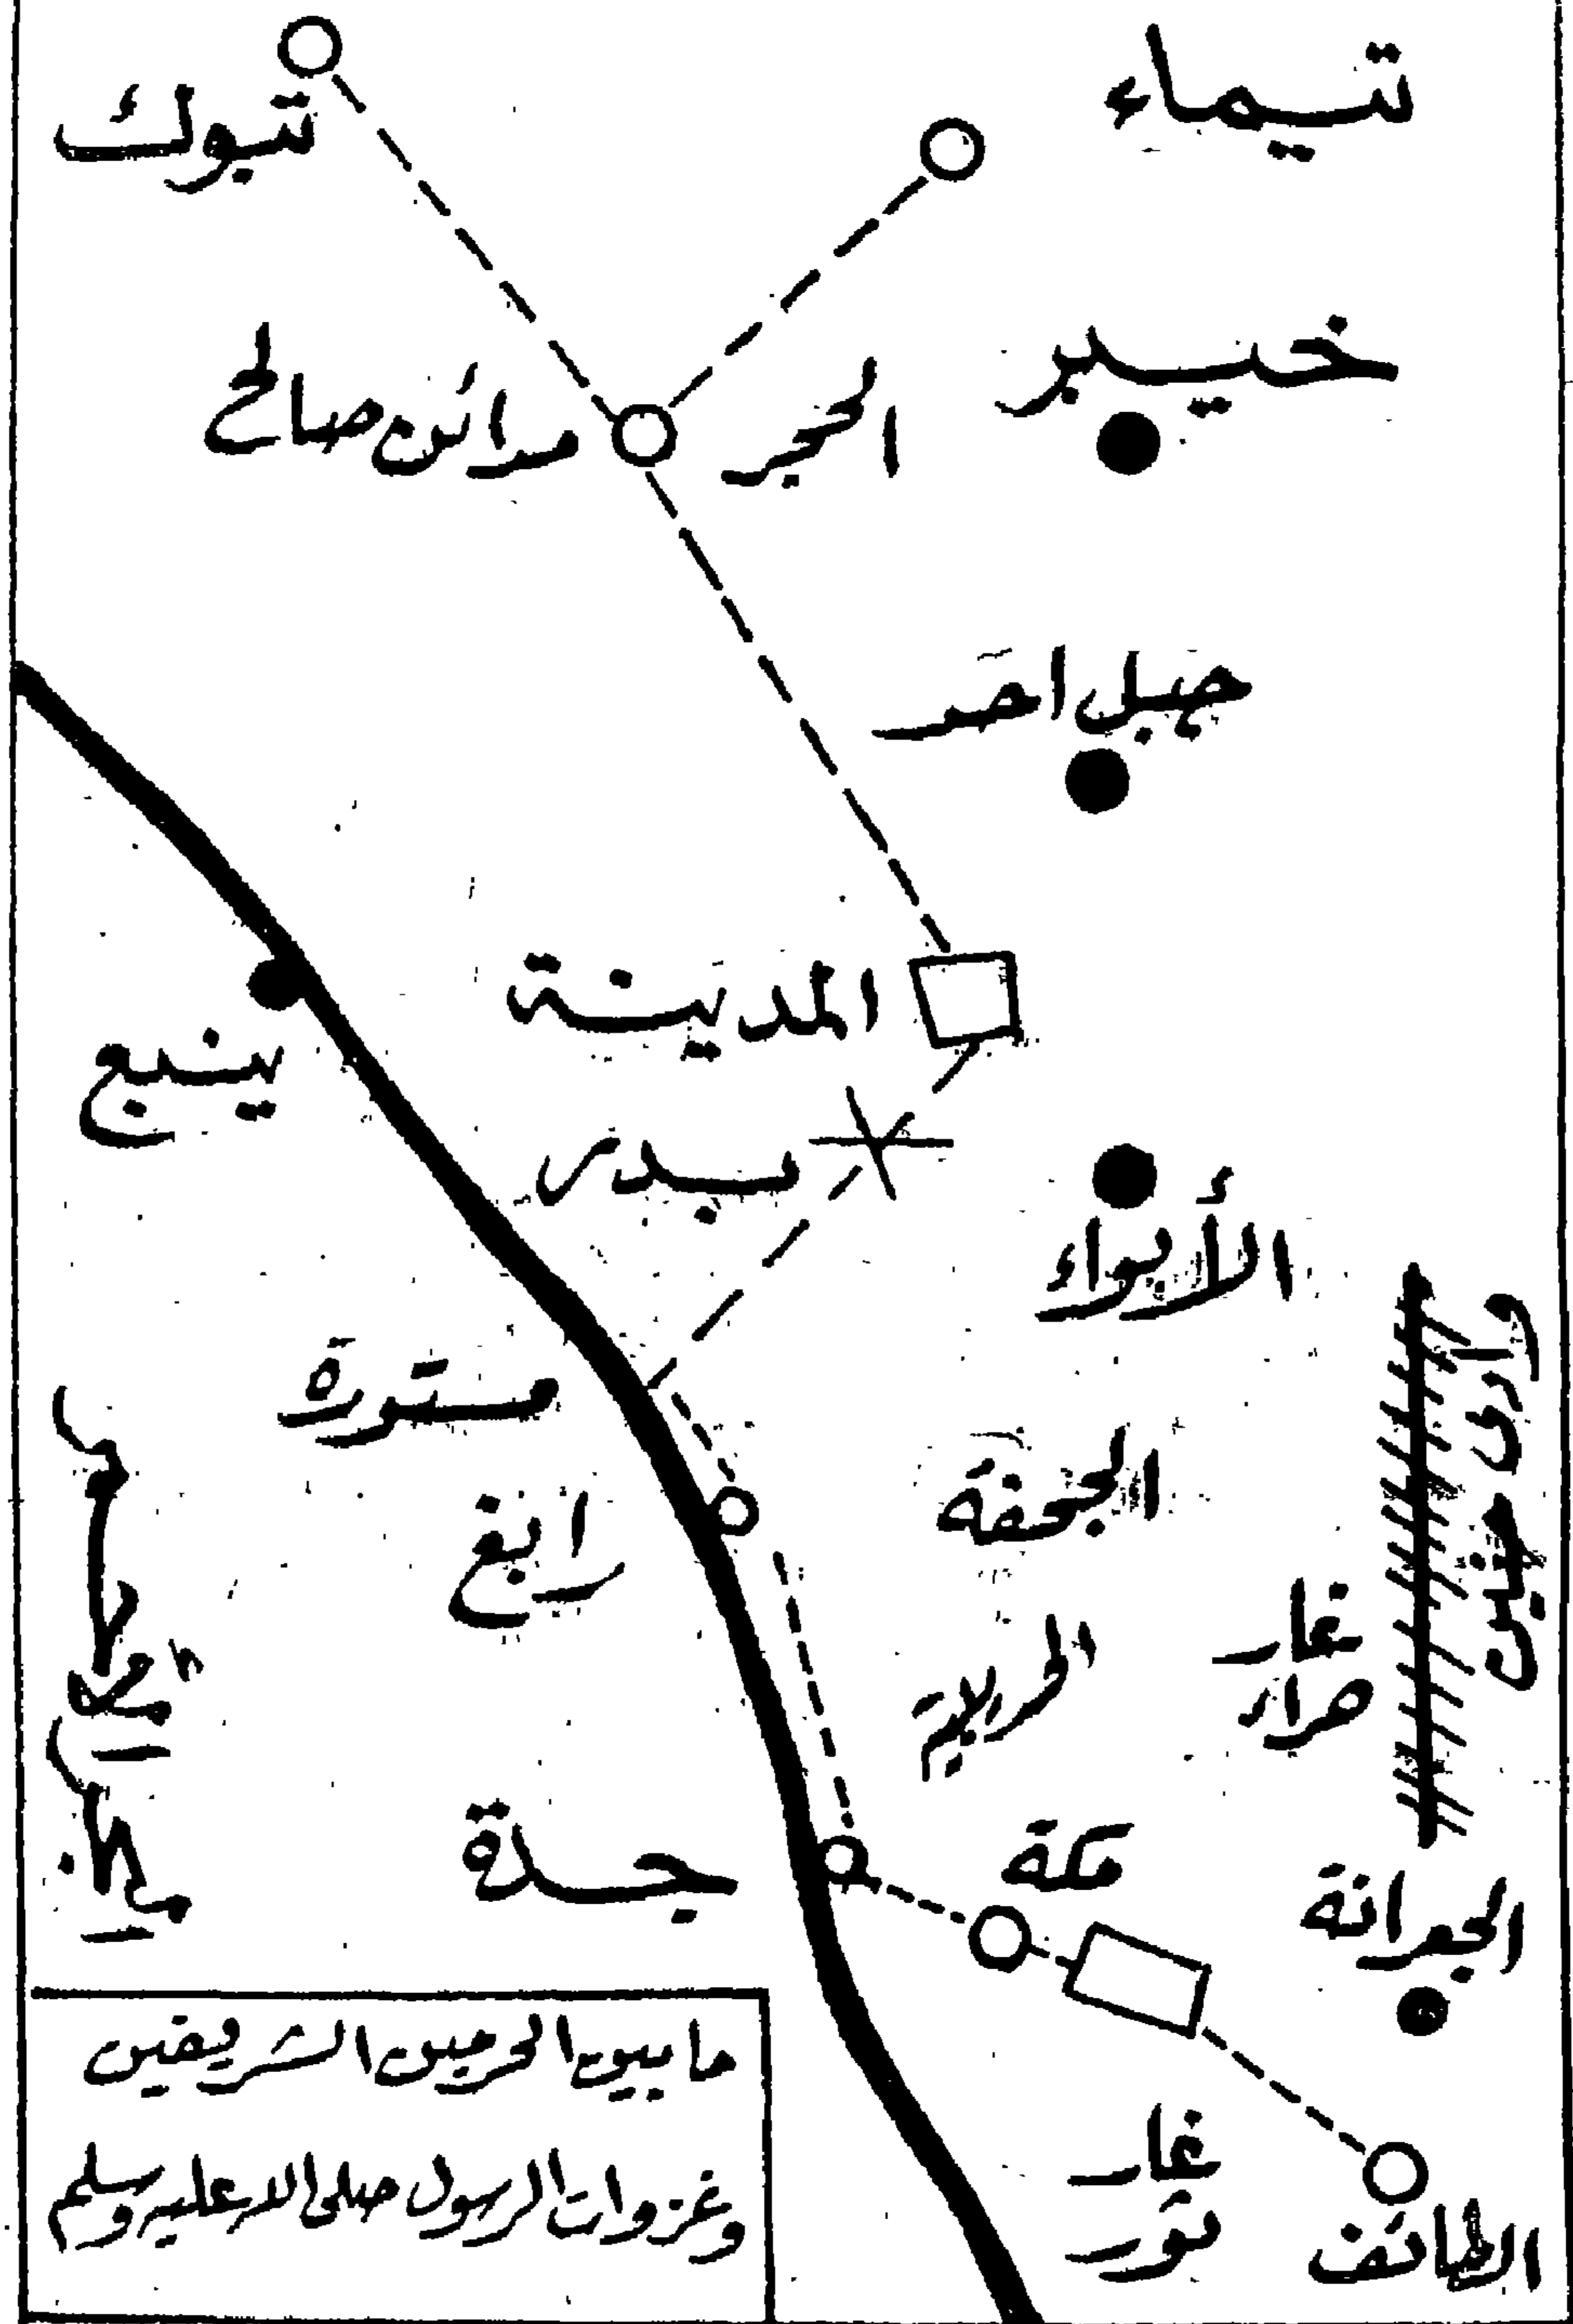 تيماء
تبوك
خيبر
الحجر
مدائن صالح
جبل احد
المدينة
ينبع
بدر
الأبواء
مستورة
الجحفة
رابغ
غار
حراء
جدة
مكة
الجعرانة
غار
ثور
الطائف
ما بين الحرمين الشريفين
وغزوات الرسول صلى الله عليه وسلم